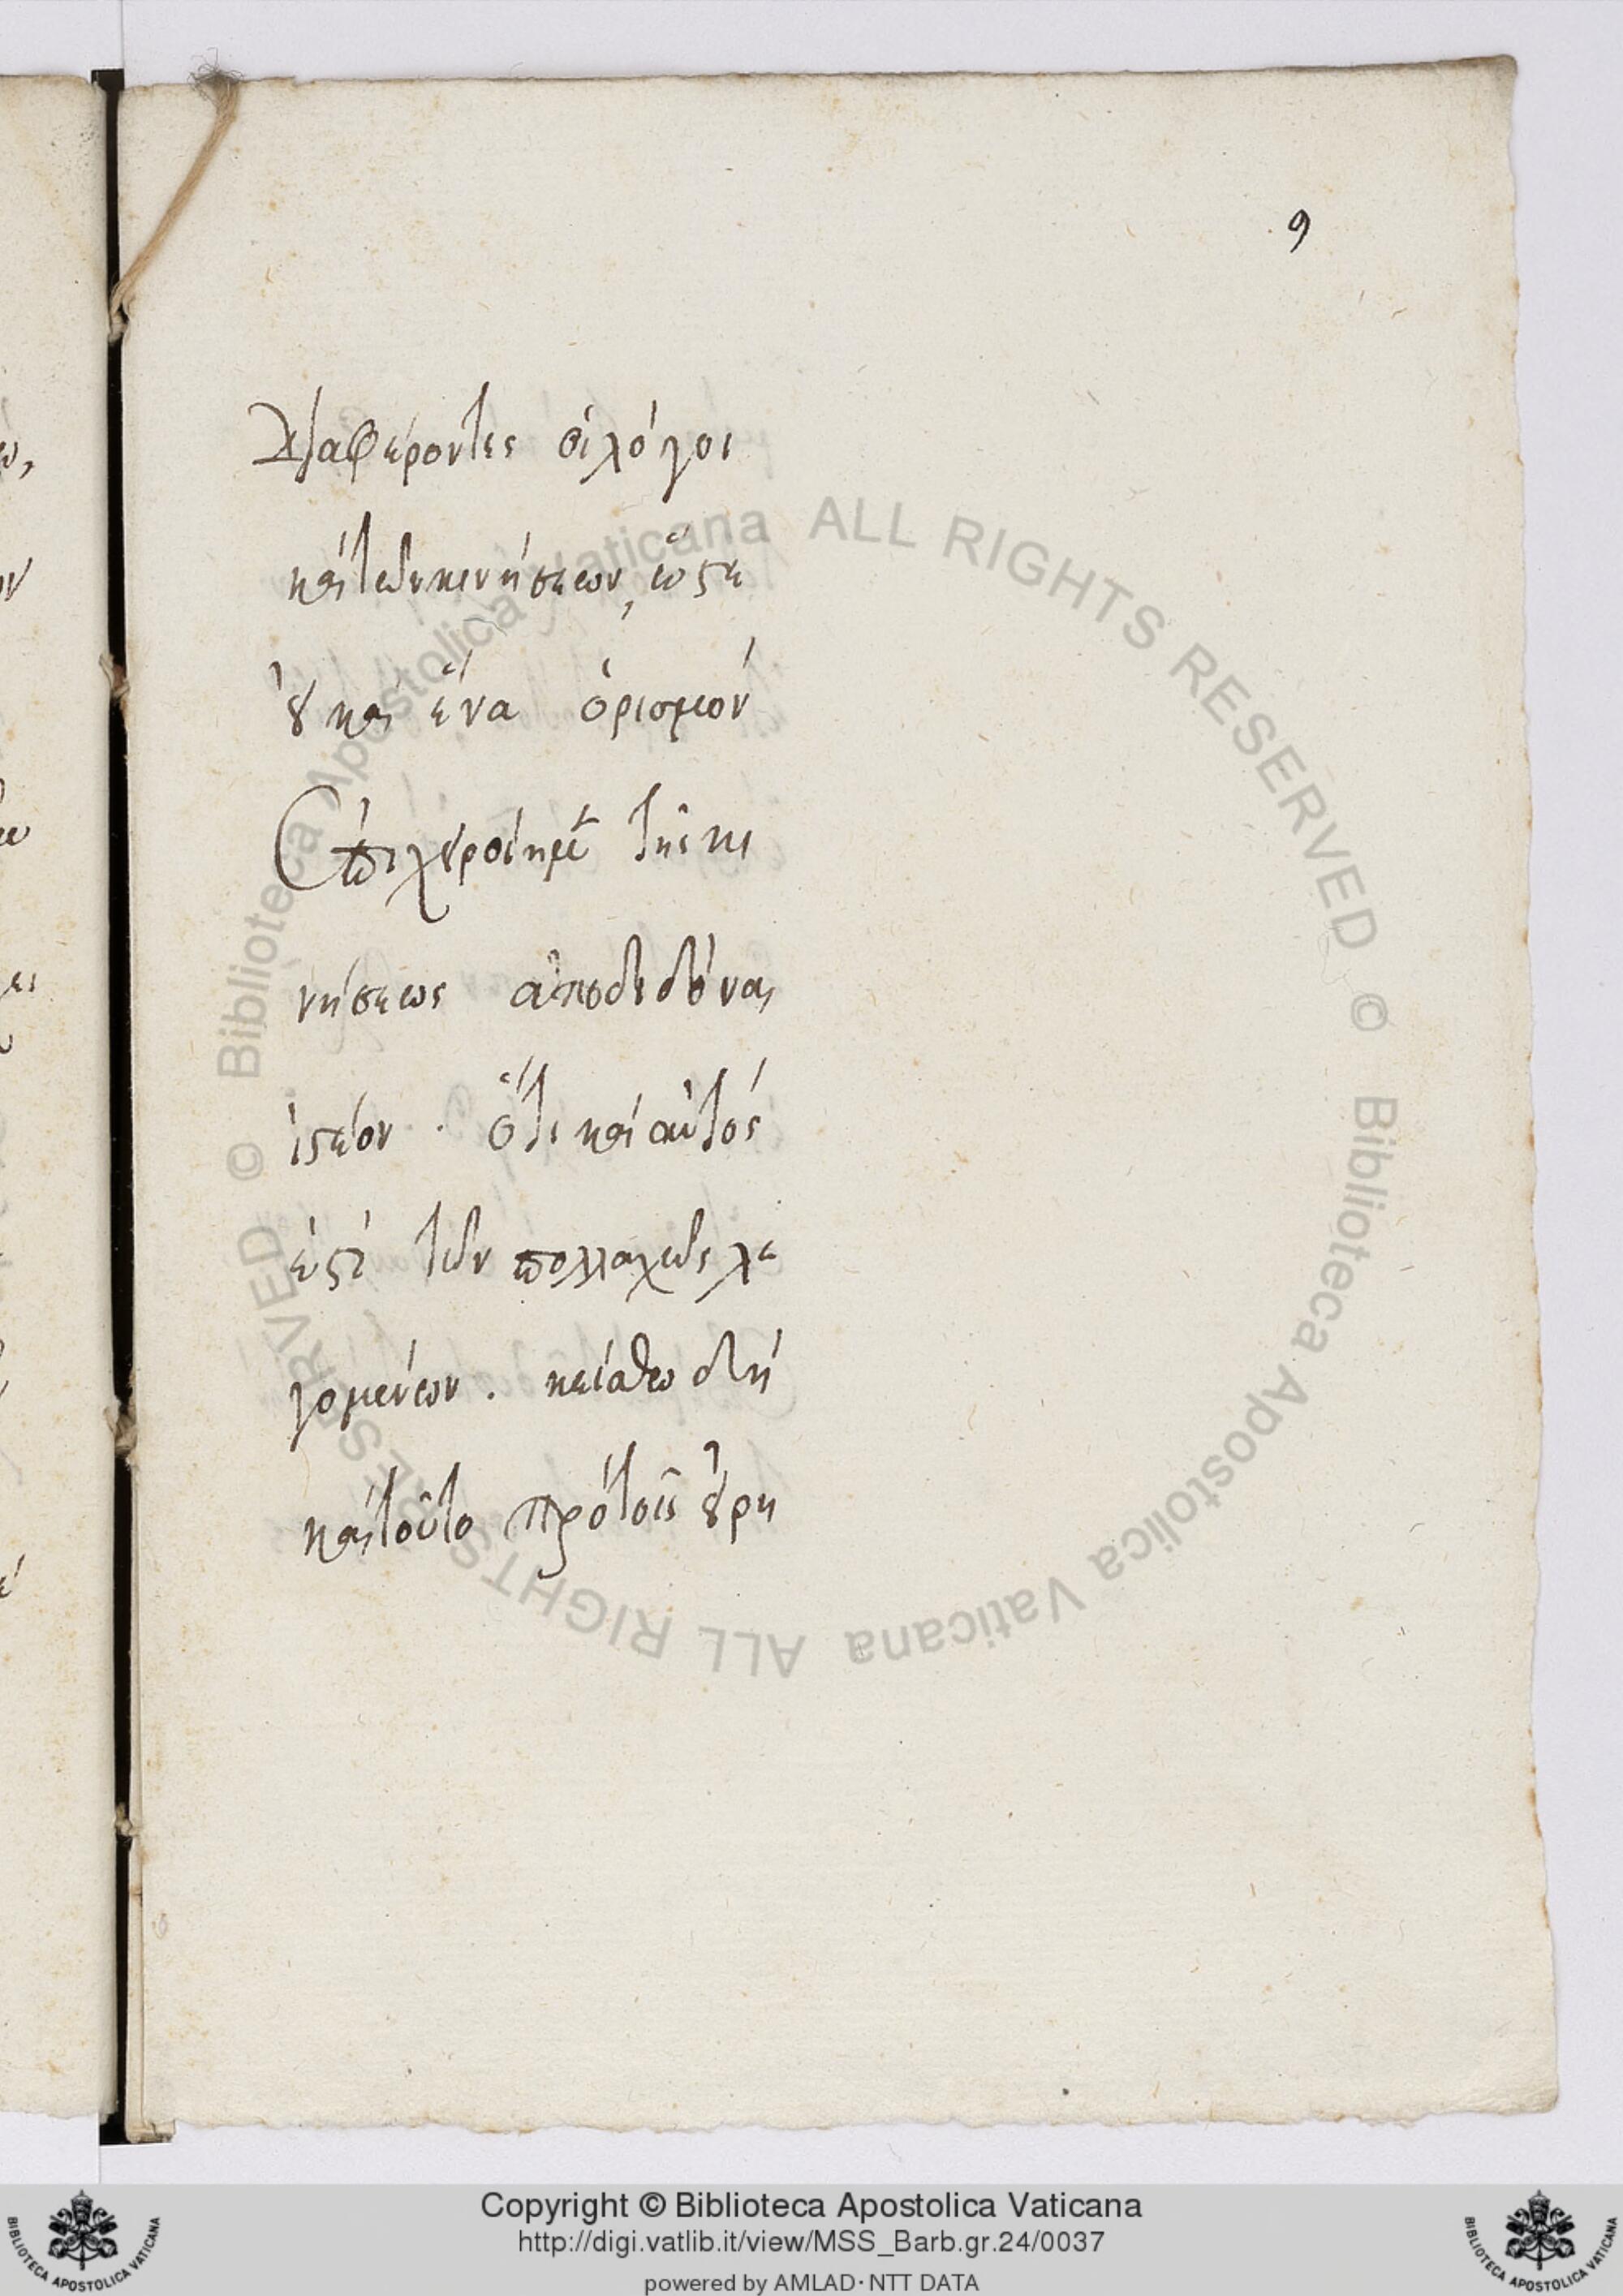 9
διαφέροντες οἱ λόγοι
καὶ τῶν κινήσεων, ὥστε
οὐ καὶ ἕνα ὁρισμὸν
τῆς κι
νήσεως ἀποδεδόναι
ἰστέον . ὅτι καὶ αὐτὸς
ἐστὶ τῶν πολλαχῶς λε
γομένων . κείσθω δὴ
καὶ τοῦτο πρὸ τοῖς
© Biblioteca Apostolica Vaticana ALL RIGHTS RESERVED © Biblioteca Apostolica Vaticana ALL RIGHTS RESERVED
Copyright © Biblioteca Apostolica Vaticana
http://digi.vatlib.it/view/MSS_Barb.gr.24/0037
powered by AMLAD·NTT DATA
BIBLIOTECA APOSTOLICA VATICANA
BIBLIOTECA APOSTOLICA VATICANA